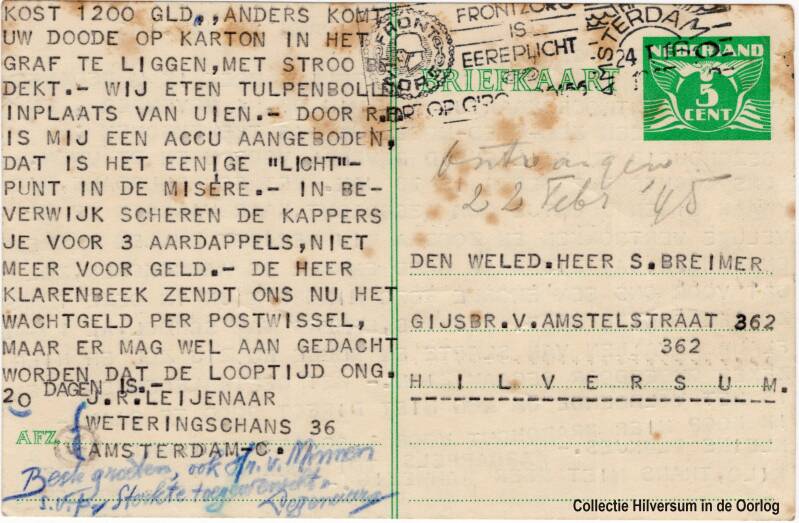 KOST 1200 GLD.,,ANDERS KOMT
UW DOODE OP KARTON IN HET
GRAF TE LIGGEN,MET STROO BE
DEKT.- WIJ ETEN TULPENBOLLE
INPLAATS VAN UIEN.- DOOR R.B.
IS MIJ EEN ACCU AANGEBODEN,
DAT IS HET EENIGE "LICHT"-
PUNT IN DE MISÈRE.- IN BE-
VERWIJK SCHEREN DE KAPPERS
JE VOOR 3 AARDAPPELS,NIET
MEER VOOR GELD.- DE HEER
KLARENBEEK ZENDT ONS NU HET
WACHTGELD PER POSTWISSEL,
MAAR ER MAG WEL AAN GEDACHT
WORDEN DAT DE LOOPTIJD ONG.
20 DAGEN IS.-
J.R.LEIJENAAR
WETERINGSCHANS 36
AFZ. AMSTERDAM-C.
Beste groeten, ook Hr. v. Minnen
s.v.p. Sterkte toegewenscht
FRONTZORG
IS
EEREPLICHT
OP GIRO
AMSTERDAM
24
BRIEFKAART
NEDERLAND
5
CENT
Ontvangen
22 Febr '45
DEN WELED.HEER S.BREIMER
GIJSBR.V.AMSTELSTRAAT 362
362
HILVERSUM.
Collectie Hilversum in de Oorlog